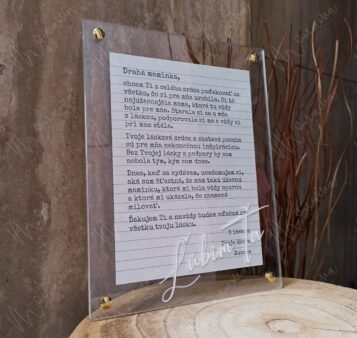 Drahá maminka,
chcem Ti z celého srdca poďakovať za
všetko, čo si pre mňa urobila. Si tá
najúžasnejšia mama, ktorá tu vždy
bola pre mňa. Starala si sa o mňa
s láskou, podporovala si ma a vždy si
pri mne stála.
Tvoje láskavé srdce a obetavá povaha
sú pre mňa nekonečnou inšpiráciou.
Bez Tvojej lásky a podpory by som
nebola tým, kým som dnes.
Dnes, keď sa vydávam, uvedomujem si,
aká som šťastná, že mám takú úžasnú
maminku, ktorá mi bola vždy oporou
a ktorá mi ukázala, čo znamená
milovať.
Ďakujem Ti a navždy budem vďačná za
všetku tvoju lásku.
S láskou
Tvoja
Zuzana
Ľúbim Ťa